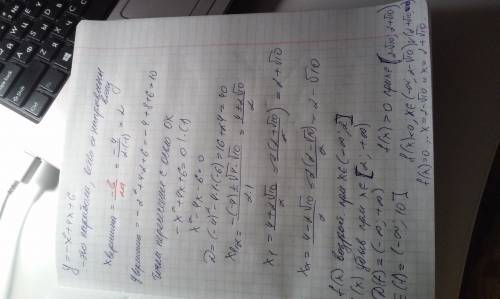 y=-x²+4x+6
-это парабола, ветви её направлены вниз
x вершина = -b/2a = -4/2(-1) = 2
y вершина = -2²+4·2+6=-4+8+6=10
Точки пересечения с осью OX
-x²+4x+6=0 |:(-1)
x²-4x-6=0
D=(-4)²-4·1·(-6)=16+24=40
x₁,₂= -(-4)±√4·√10/2·1 = 4±2√10/2
x₁= 4+2√10/2 = 2(2+√10)/2 = 2+√10
x₂= 4-2√10/2 = 2(2-√10)/2 = 2-√10
f(x) возраст при x∈(-∞, 2]
f(x) убыв при x∈[2, +∞)
D(f)=(-∞, +∞)
E(f)=(-∞, 10]
f(x)>0 при x∈[2-√10, 2+√10]
f(x)<0, x∈(-∞, 2-√10)∪(2+√10, +∞)
f(x)=0 x=2-√10 и x=2+√10